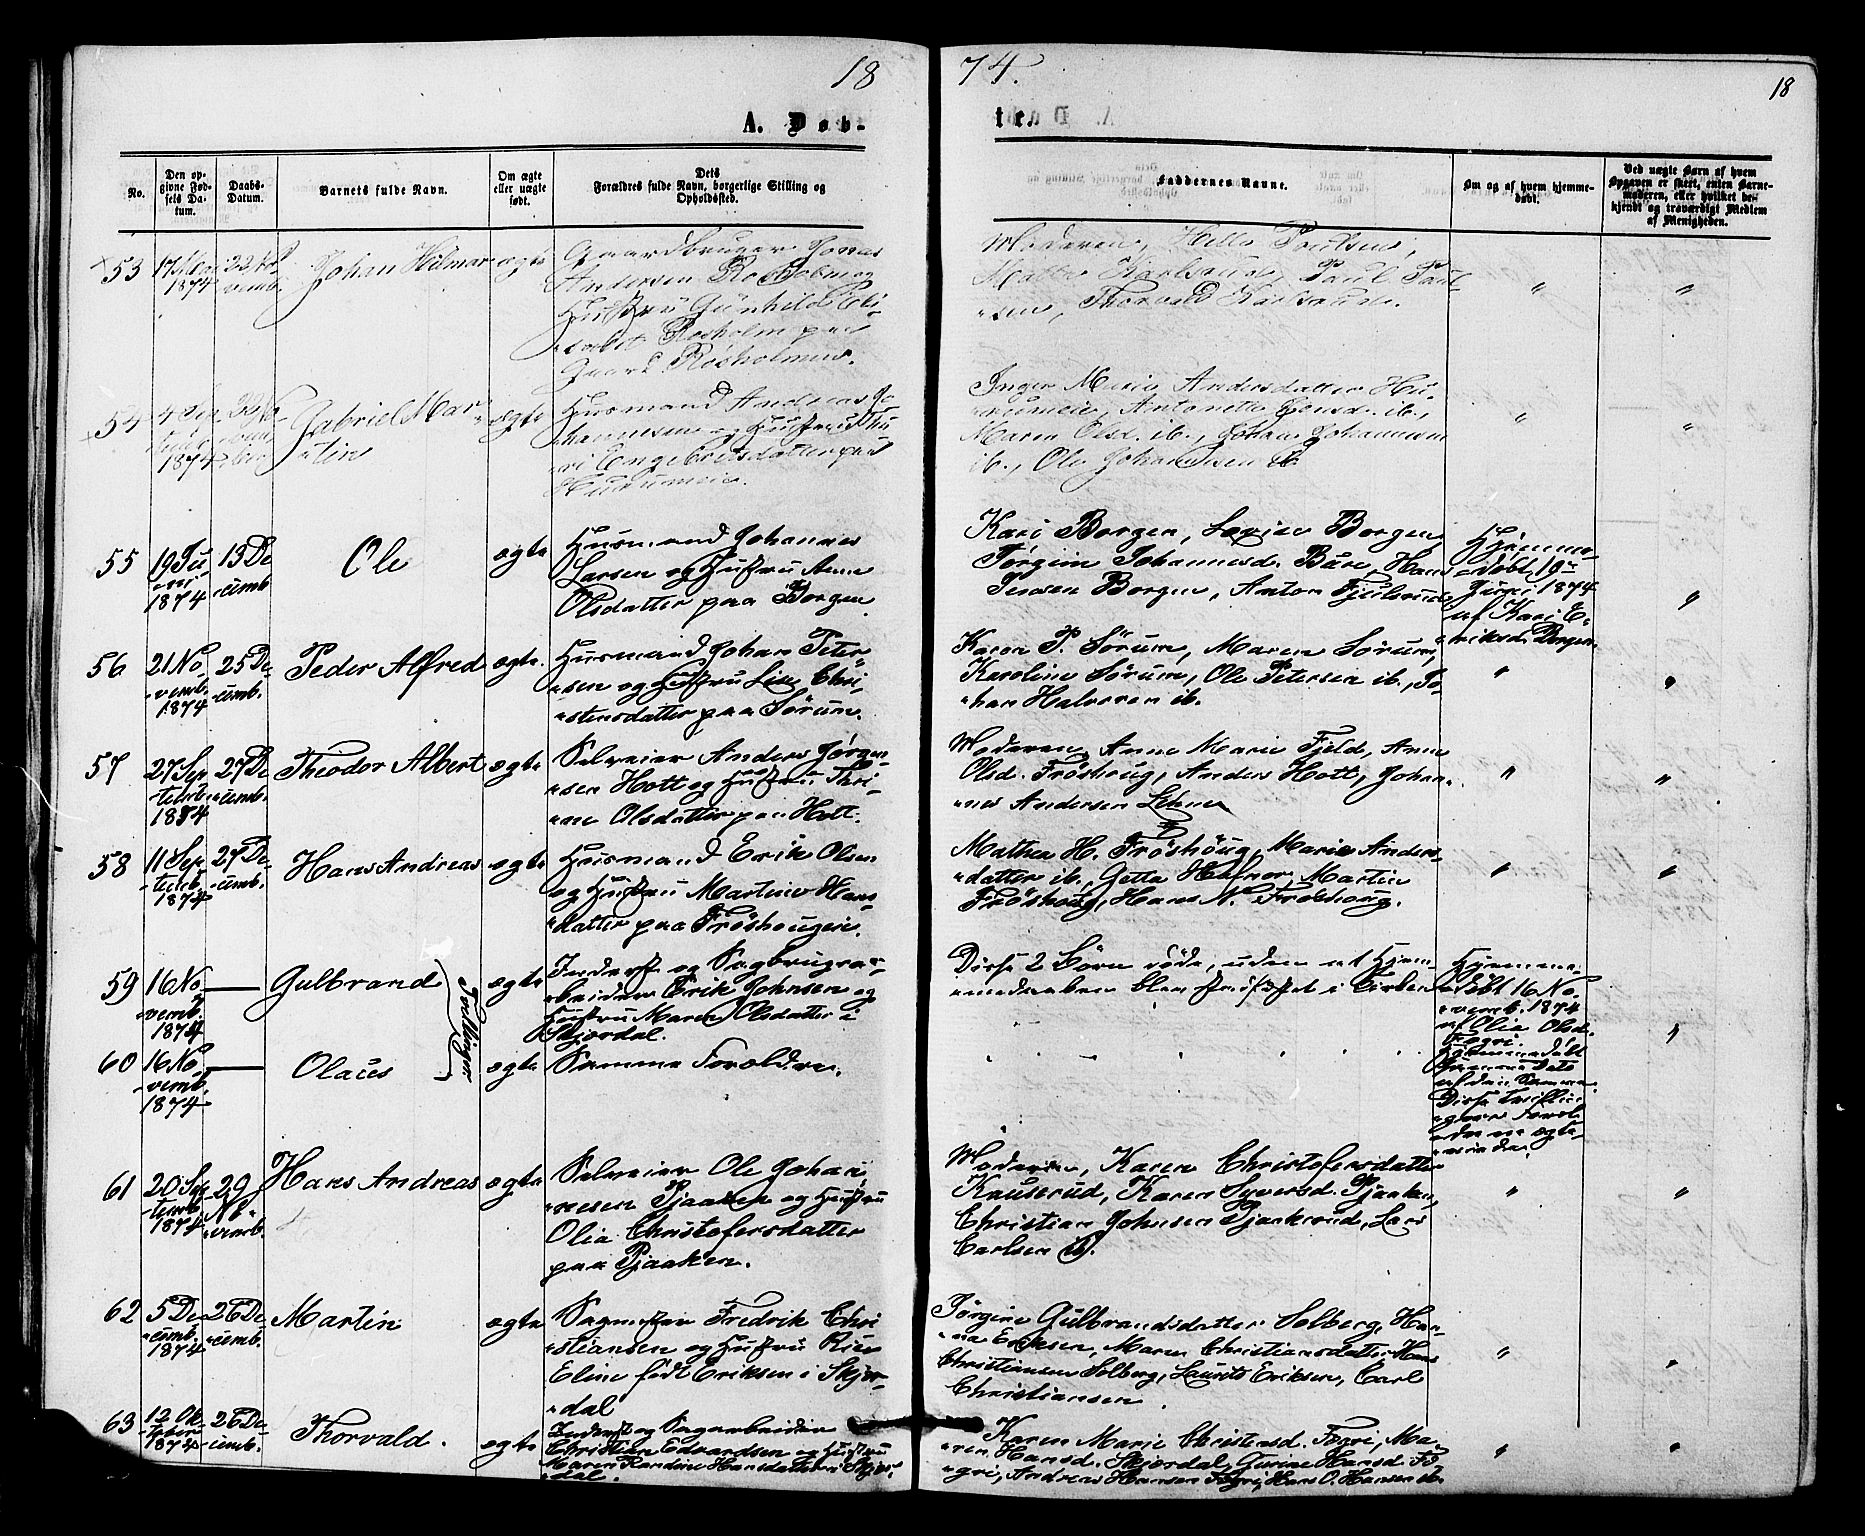 18 74.
18
A. Døb-
te.
No.
Den op-
givne Fød-
sels Da-
tum.
Daabs-
Datum.
Barnets fulde Navn.
Om ægte
eller uægte
født.
Dets
Forældres fulde Navn, borgerlige Stilling og
Opholdssted.
Faddernes Navne.
Om og af hvem hjemme-
døbt.
Ved uægte Børn af hvem
Opgaven er skeet, enten Barne-
moderen, eller hvilket be-
kjendt og troværdigt Medlem
af Menigheden.
53
1874
Johan Hilmar
ægte
Gaardbruger Jonas
Andersen Rosholm og
Hustru Gunhild Eli-
sabet Rosholm paa
Gaard Rosholmen.
Moderen, Helle Paulsen,
Mathea Karlsrud, Paul Paul-
sen, Thorvald Karlsrud.
"
"
54
4 Sep-
tember
1874
22 No-
vem-
ber
Gabriel Mar-
tin
ægte
Husmand Andreas Jo-
hannesen og Hustru Thu-
ri Engebretsdatter paa
Hurumeie.
Inger Marie Andersdatter Hu-
rumeie, Antonette Jensd. ib.,
Maren Olsd. ib., Johan Johannesen
ib., Ole Johannesen ib.
"
"
55
19 Ju-
ni
1874
13 De-
cemb.
Ole
ægte
Husmand Johannes
Larsen og Hustru Anne
Olsdatter paa Borgen.
Kari Borgen, Lovise Borgen,
Jørgine Johannesd. Büre, Hans
Jensen Borgen, Anton Fjulsrud
Hjemme-
døbt 19de
Juni 1874
af Kari E-
riksd. Borgen.
"
56
21 No-
vemb.
1874
25 De-
cemb.
Peder Alfred
ægte.
Husmand Johan Peter-
sen og Hustru Lise Chri-
stensdatter paa Sørum.
Karen P. Sørum, Maren Sørum,
Karoline Sørum, Ole Petersen ib., Jo-
han Halvorsen ib.
"
"
57
27 Sep-
temb.
1874
27 De-
cemb.
Theodor Albert
ægte
Selveier Anders Jørgen-
sen Hott og Hustru Thri-
ne Olsdatter paa Hott.
Moderen, Anne Marie Fjeld, Anne
Olsd. Frøshoug, Anders Hott, Johan-
nes Andersen Lehne
"
"
58
11 Sep-
temb.
1874
27 De-
cemb.
Hans Andreas
ægte
Husmand Erik Olsen
og Hustru Martine Hans-
datter paa Frøshougeie.
Mathea H. Frøshoug, Marie Anders-
datter ib., Martin
Frøshoug, Hans N. Frøshoug.
"
"
59
16 No-
vemb.
1874
Gulbrand
Tvillinger
ægte
Inderst og Sagbrugsar-
beider Erik Johnsen og
Hustru Maren Olsdatter i
Skjørdal.
Disse 2 Børn døde, uden at Hjem-
medaaben blev stadfæstet i Kirken
Hjemme-
døbt 16 No-
vemb. 1874
af Olia Olsd.
Fegri.
"
60
16 No-
vemb.
1874
Olaus
ægte
Samme Forældre.
Hjemmedøbt
samme Dato
af den Samme.
Disse Tvillin-
gers Foræl-
dre ere ægte-
viede.
61
20 Sep-
temb.
1874
29
No-
vemb.
Hans Andreas
ægte
Selveier Ole Johan-
nesen Pjaaken og Hustru
Olia Christofersdatter
paa Pjaaken.
Moderen, Karen Christofersdatter
Knuserud, Karen Syversd. Pjaaken,
Christian Johnsen Pjaakerud, Lars
Carlsen ib.
"
"
62
5 De-
cemb.
1874
26 De-
cemb.
Martin
ægte
Sagmester Fredrik Chri-
stiansen og Hustru
Eline født Eriksen i Skjør-
dal
Jørgine Gulbrandsdatter Solberg, Han-
na Eriksen, Maren Christiansdatter, Hans
Christiansen Solberg, Laurits Eriksen, Carl
Christiansen.
"
"
63
12 Ok-
tober
1874
26 De-
cemb.
Thorvald.
ægte
Inderst og Sagarbeider
Christian Edvardsen og Hustru
Maren Randine Hansdatter i Skjør-
dal.
Karen Marie Christensd. Fegri, Ma-
ren Hansd. Skjørdal, Gurine Hansd. Fe-
gri, Andreas Hansen Fegri, Hans O. Hansen ib.
"
"